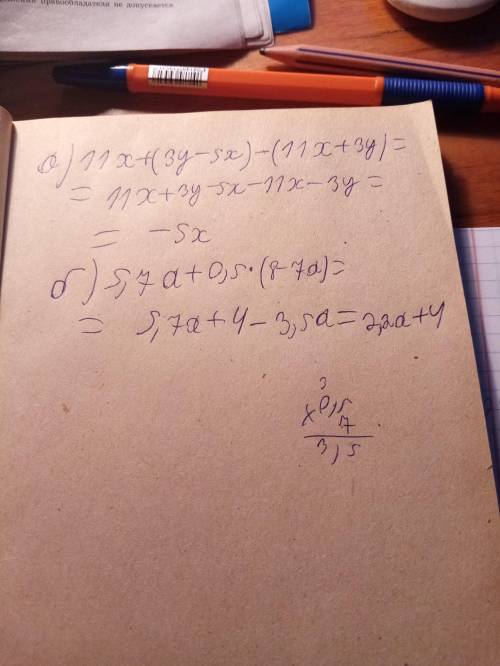 зиции правообладателя не допускается
а) 11x+(3y-5x)-(11x+3y)=
= 11x+3y-5x-11x-3y=
= -5x
б) 5,7a+0,5·(8-7a)=
= 5,7a+4-3,5a=2,2a+4
3
x 0,5
7
3,5